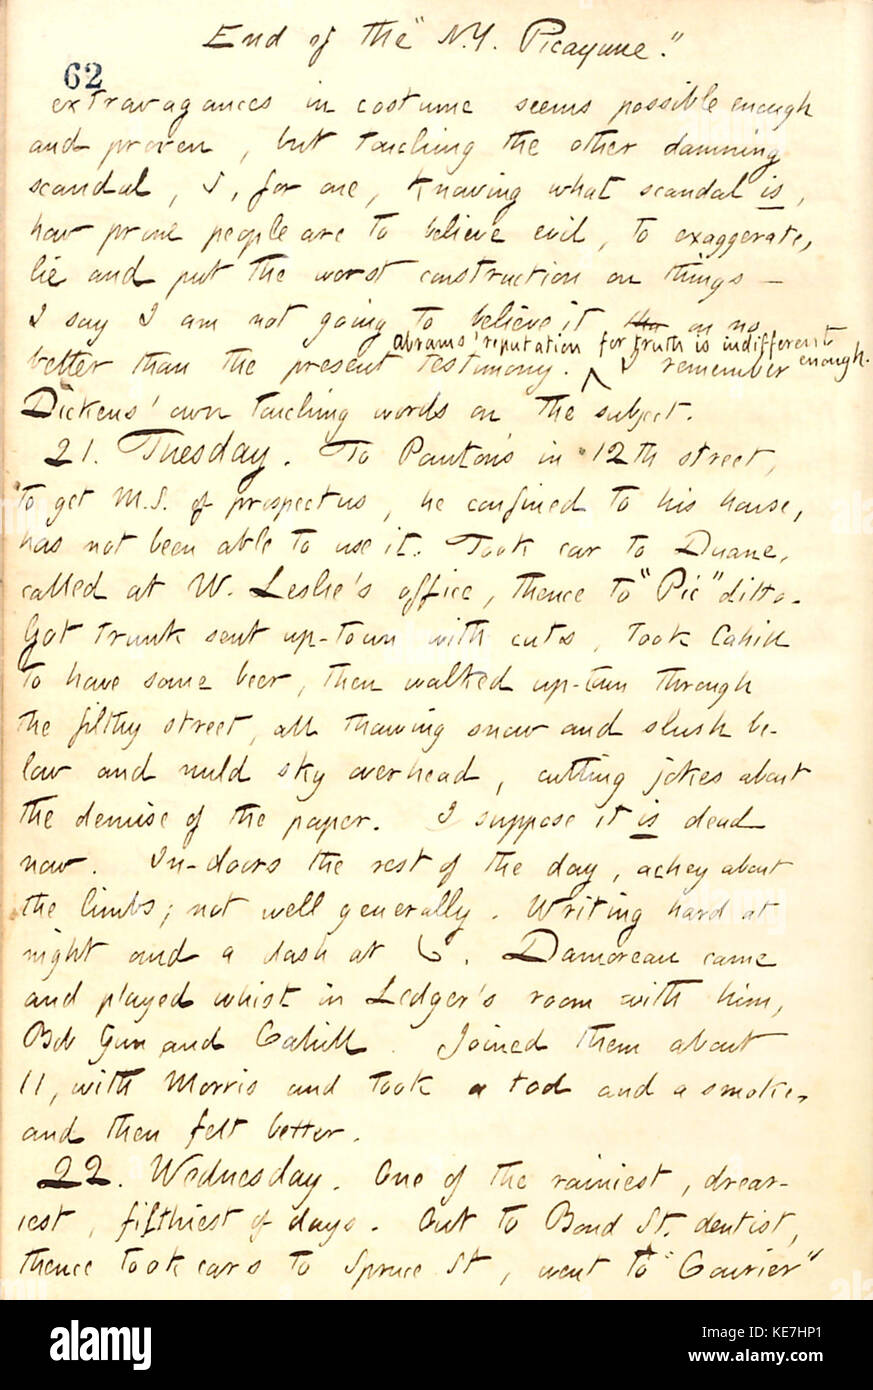 End of the "N.Y. Picayune."
62
extravagances in costume seems possible enough
and proven, but touching the other damning
scandal, I, for one, knowing what scandal is,
how prone people are to believe evil, to exaggerate,
lie and put the worst construction on things —
I say I am not going to believe it on no
abrams' reputation for truth is indifferent
better than the present testimony. I remember enough.
Dickens' own touching words on the subject.
21. Tuesday. To Panton's in 12th street,
to get M.S. of prospectus, he confined to his house,
has not been able to use it. Took car to Duane,
called at W. Leslie's office, thence to "Pic" ditto.
Got trunk sent up-town with cuts, took Cahill
to have some beer, then walked up-town through
the filthy street, all thawing snow and slush be-
low and mild sky overhead, cutting jokes about
the demise of the paper. I suppose it is dead
now. In-doors the rest of the day, achey about
the limbs; not well generally. Writing hard at
night and a dash at . Damoreau came
and played whist in Ledger's room with him,
Bob Gun and Cahill. Joined them about
11, with Morris and took a tod and a smoke,
and then felt better.
22. Wednesday. One of the rainiest, drear-
iest, filthiest of days. Out to Bond St. dentist,
thence took cars to Spruce St, went to "Courier"
alamy
Image ID: KE7HP1
www.alamy.com